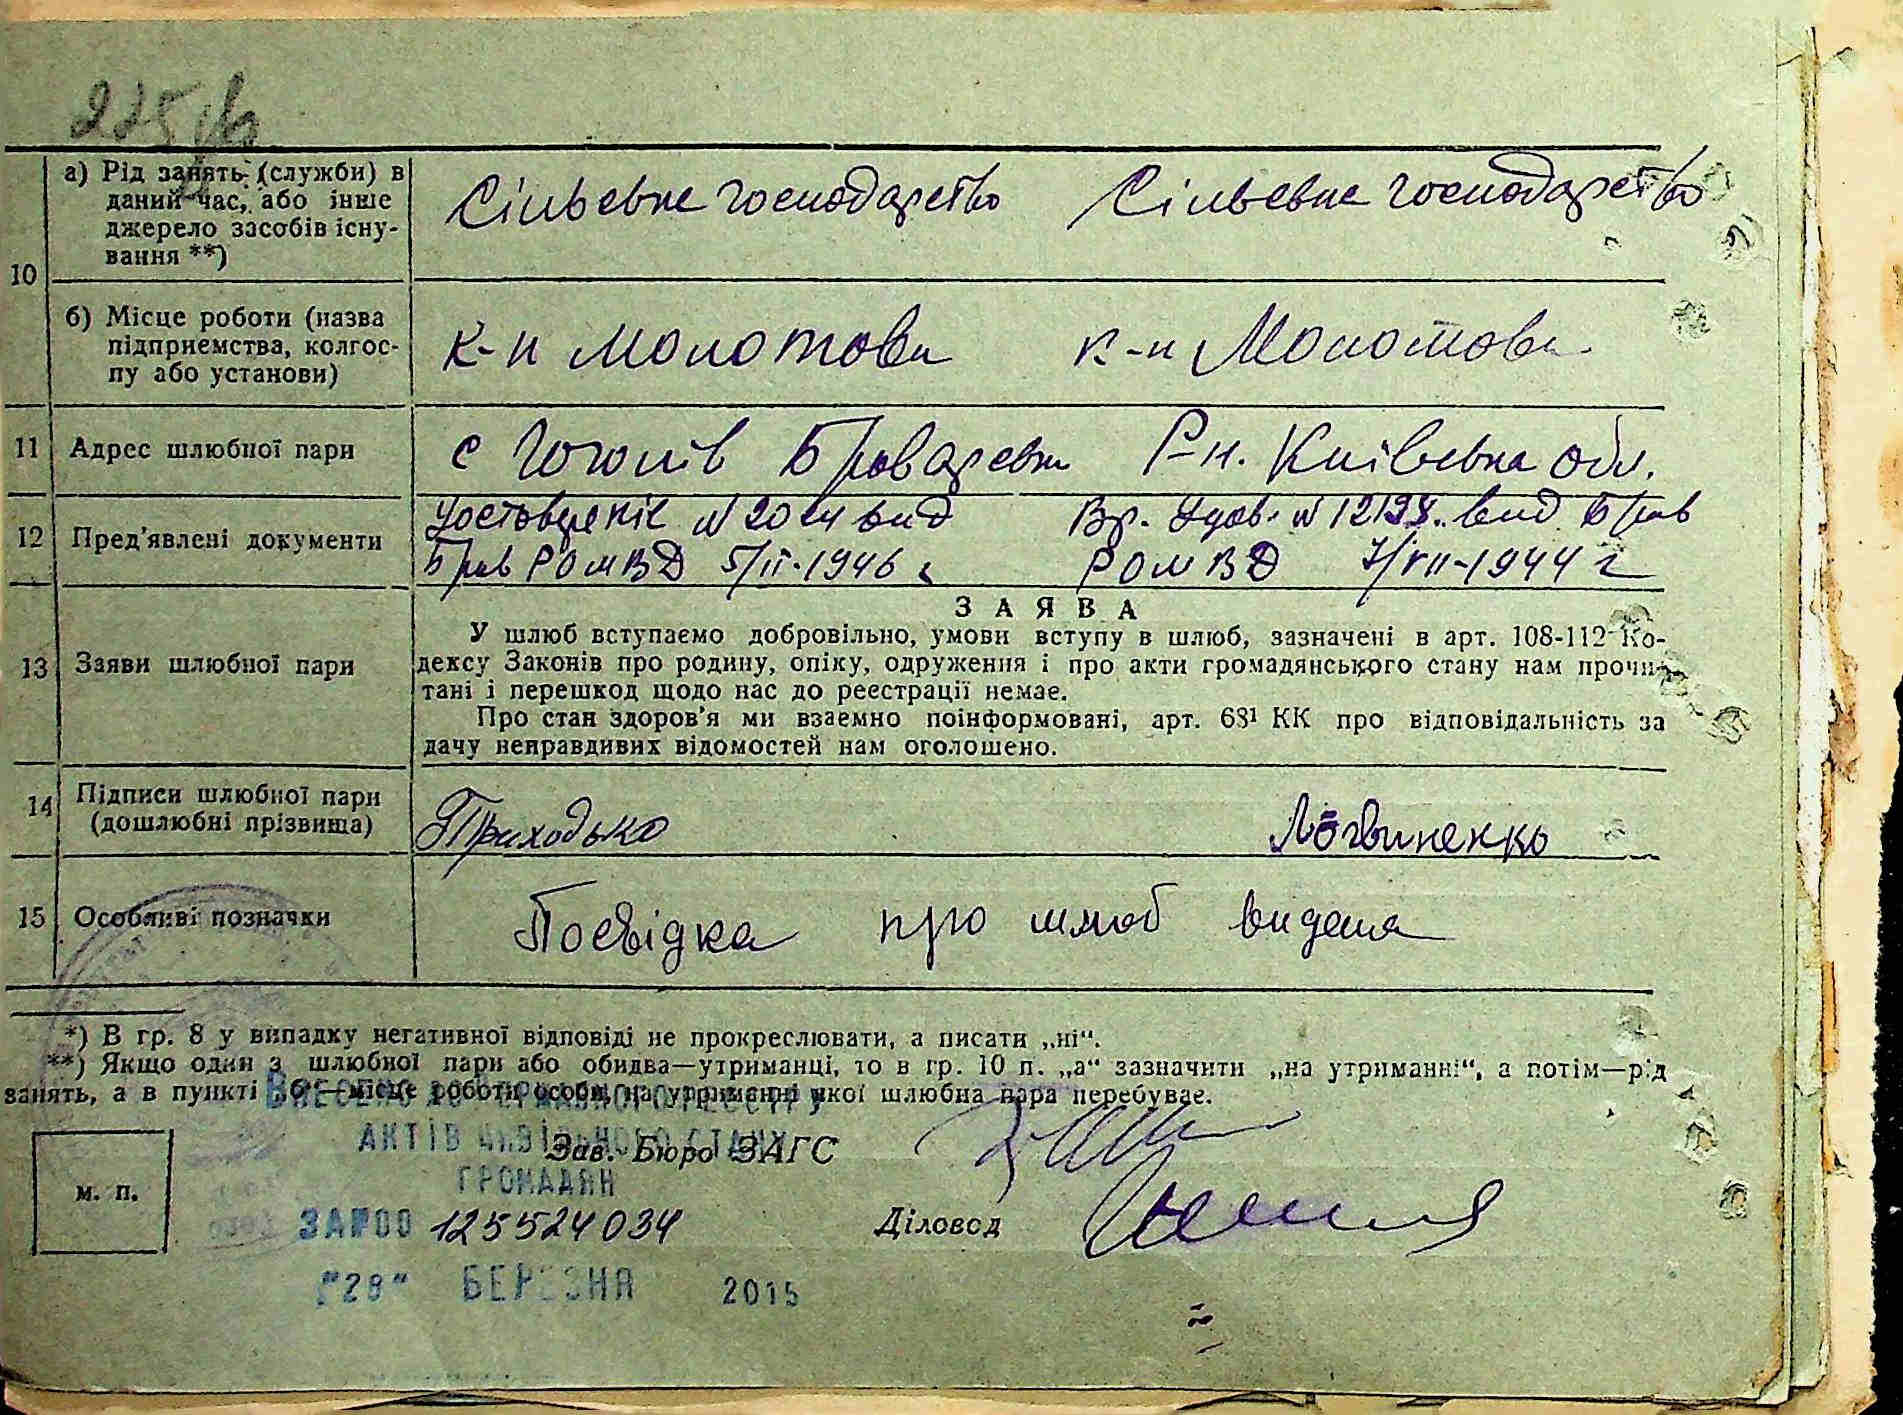 225
10 а) Рід занять (служби) в
даний час, або інше
джерело засобів існу-
вання **)
Сільське господарство Сільське господарство
б) Місце роботи (назва
підприємства, колгос-
пу або установи)
к-п Молотова к-п Молотова
11 Адрес шлюбної пари
с Гоголів Броварськ Р-н. Київська обл.
12 Пред'явлені документи
вид Вр. Удов. N 12198. вид Бров
Бров РОМВД 5/II-1946 г РОМВД 7/VII-1944 г
ЗАЯВА
13 Заяви шлюбної пари
У шлюб вступаємо добровільно, умови вступу в шлюб, зазначені в арт. 108-112 Ко-
дексу Законів про родину, опіку, одруження і про акти громадянського стану нам прочи-
тані і перешкод щодо нас до реєстрації немає.
Про стан здоров'я ми взаємно поінформовані, арт. 68¹ КК про відповідальність за
дачу неправдивих відомостей нам оголошено.
14 Підписи шлюбної пари
(дошлюбні прізвища)
Приходько Логвиненко
15 Особливі позначки
Посвідка про шлюб видана
*) В гр. 8 у випадку негативної відповіді не прокреслювати, а писати „ні“.
**) Якщо один з шлюбної пари або обидва—утриманці, то в гр. 10 п. „а“ зазначити „на утриманні“, а потім—рід
занять, а в пункті „б“—місце роботи особи, на утриманні якої шлюбна пара перебуває.
ВНЕСЕНО ДО ДЕРЖАВНОГО РЕЄСТРУ
АКТІВ ЦИВІЛЬНОГО СТАНУ
ГРОМАДЯН
Зав. Бюро ЗАГС
м. п.
ЗА №00 125524034
Діловод
"28" БЕРЕЗНЯ 2015